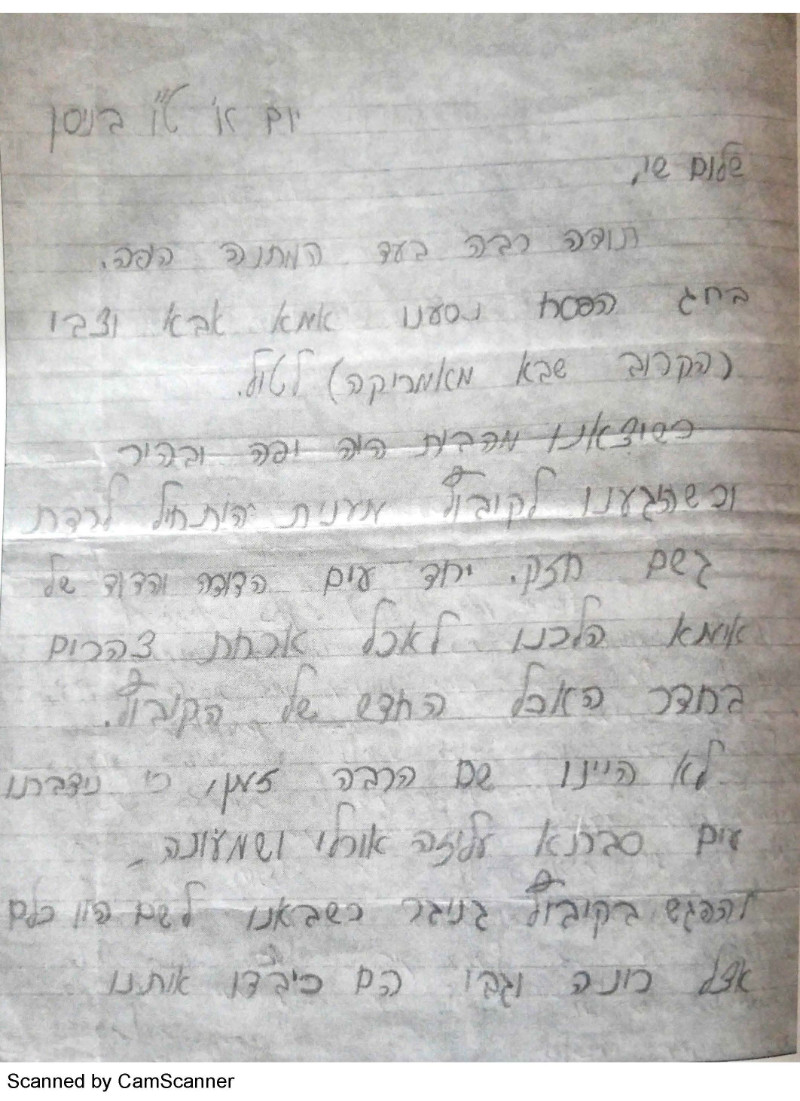 יום א' ט"ו בניסן
שלום שי,
תודה רבה בעד המתנה היפה.
בחג הפסח נסענו אמא אבא וצבי
(הקרוב שבא מאמריקה) לטיול.
כשיצאנו מהבית היה יפה ובהיר
וכשהגענו לקיבוץ מענית התחיל לרדת
גשם חזק. יחד עים הדודה והדוד של
אימא הלכנו לאכל ארוחת צהרים
בחדר האכל החדש של הקיבוץ.
לא היינו שם הרבה זמן, כי נידברנו
עים סבתא עליזה אורלי ושמעונה
להפגש בקיבוץ גניגר כשבאנו לשם היו כלם
אצל רונה וגבי הם כיבדו אותנו
Scanned by CamScanner